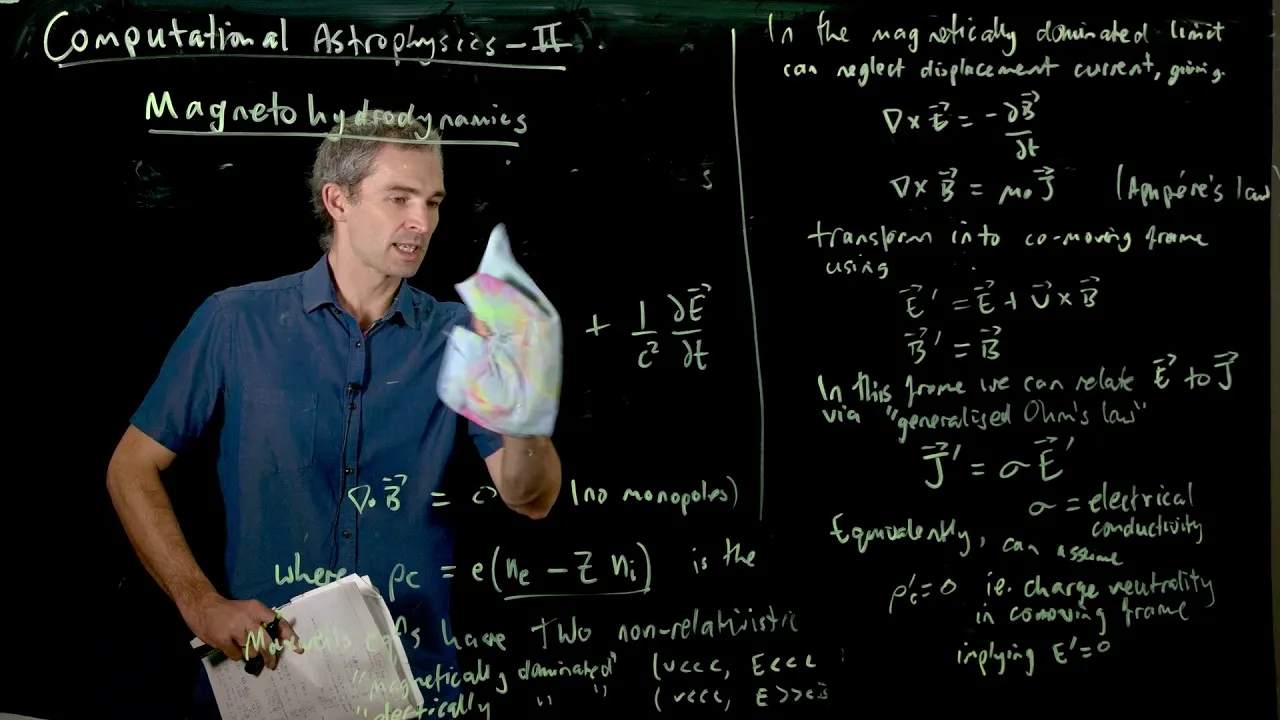 Computational Astrophysics - II
Magnetohydrodynamics
+ 1/c² ∂E⃗/∂t
∇·B⃗ = 0 (no monopoles)
where ρc = e(ne - Z ni) is the
have two non-relativistic
"magnetically dominated" (v<<c, E<<c
" " (v<<c, E>>cB
In the magnetically dominated limit
can neglect displacement current, giving
∇×E⃗ = -∂B⃗/∂t
∇×B⃗ = μ₀J⃗ (Ampére's law
transform into co-moving frame
using
E⃗' = E⃗ + v⃗×B⃗
B⃗' = B⃗
In this frame we can relate E⃗ to J⃗
via "generalised Ohm's law"
J⃗' = σE⃗'
σ = electrical
conductivity
Equivalently, can assume
ρc' = 0 ie. charge neutrality
in comoving frame
implying E' = 0